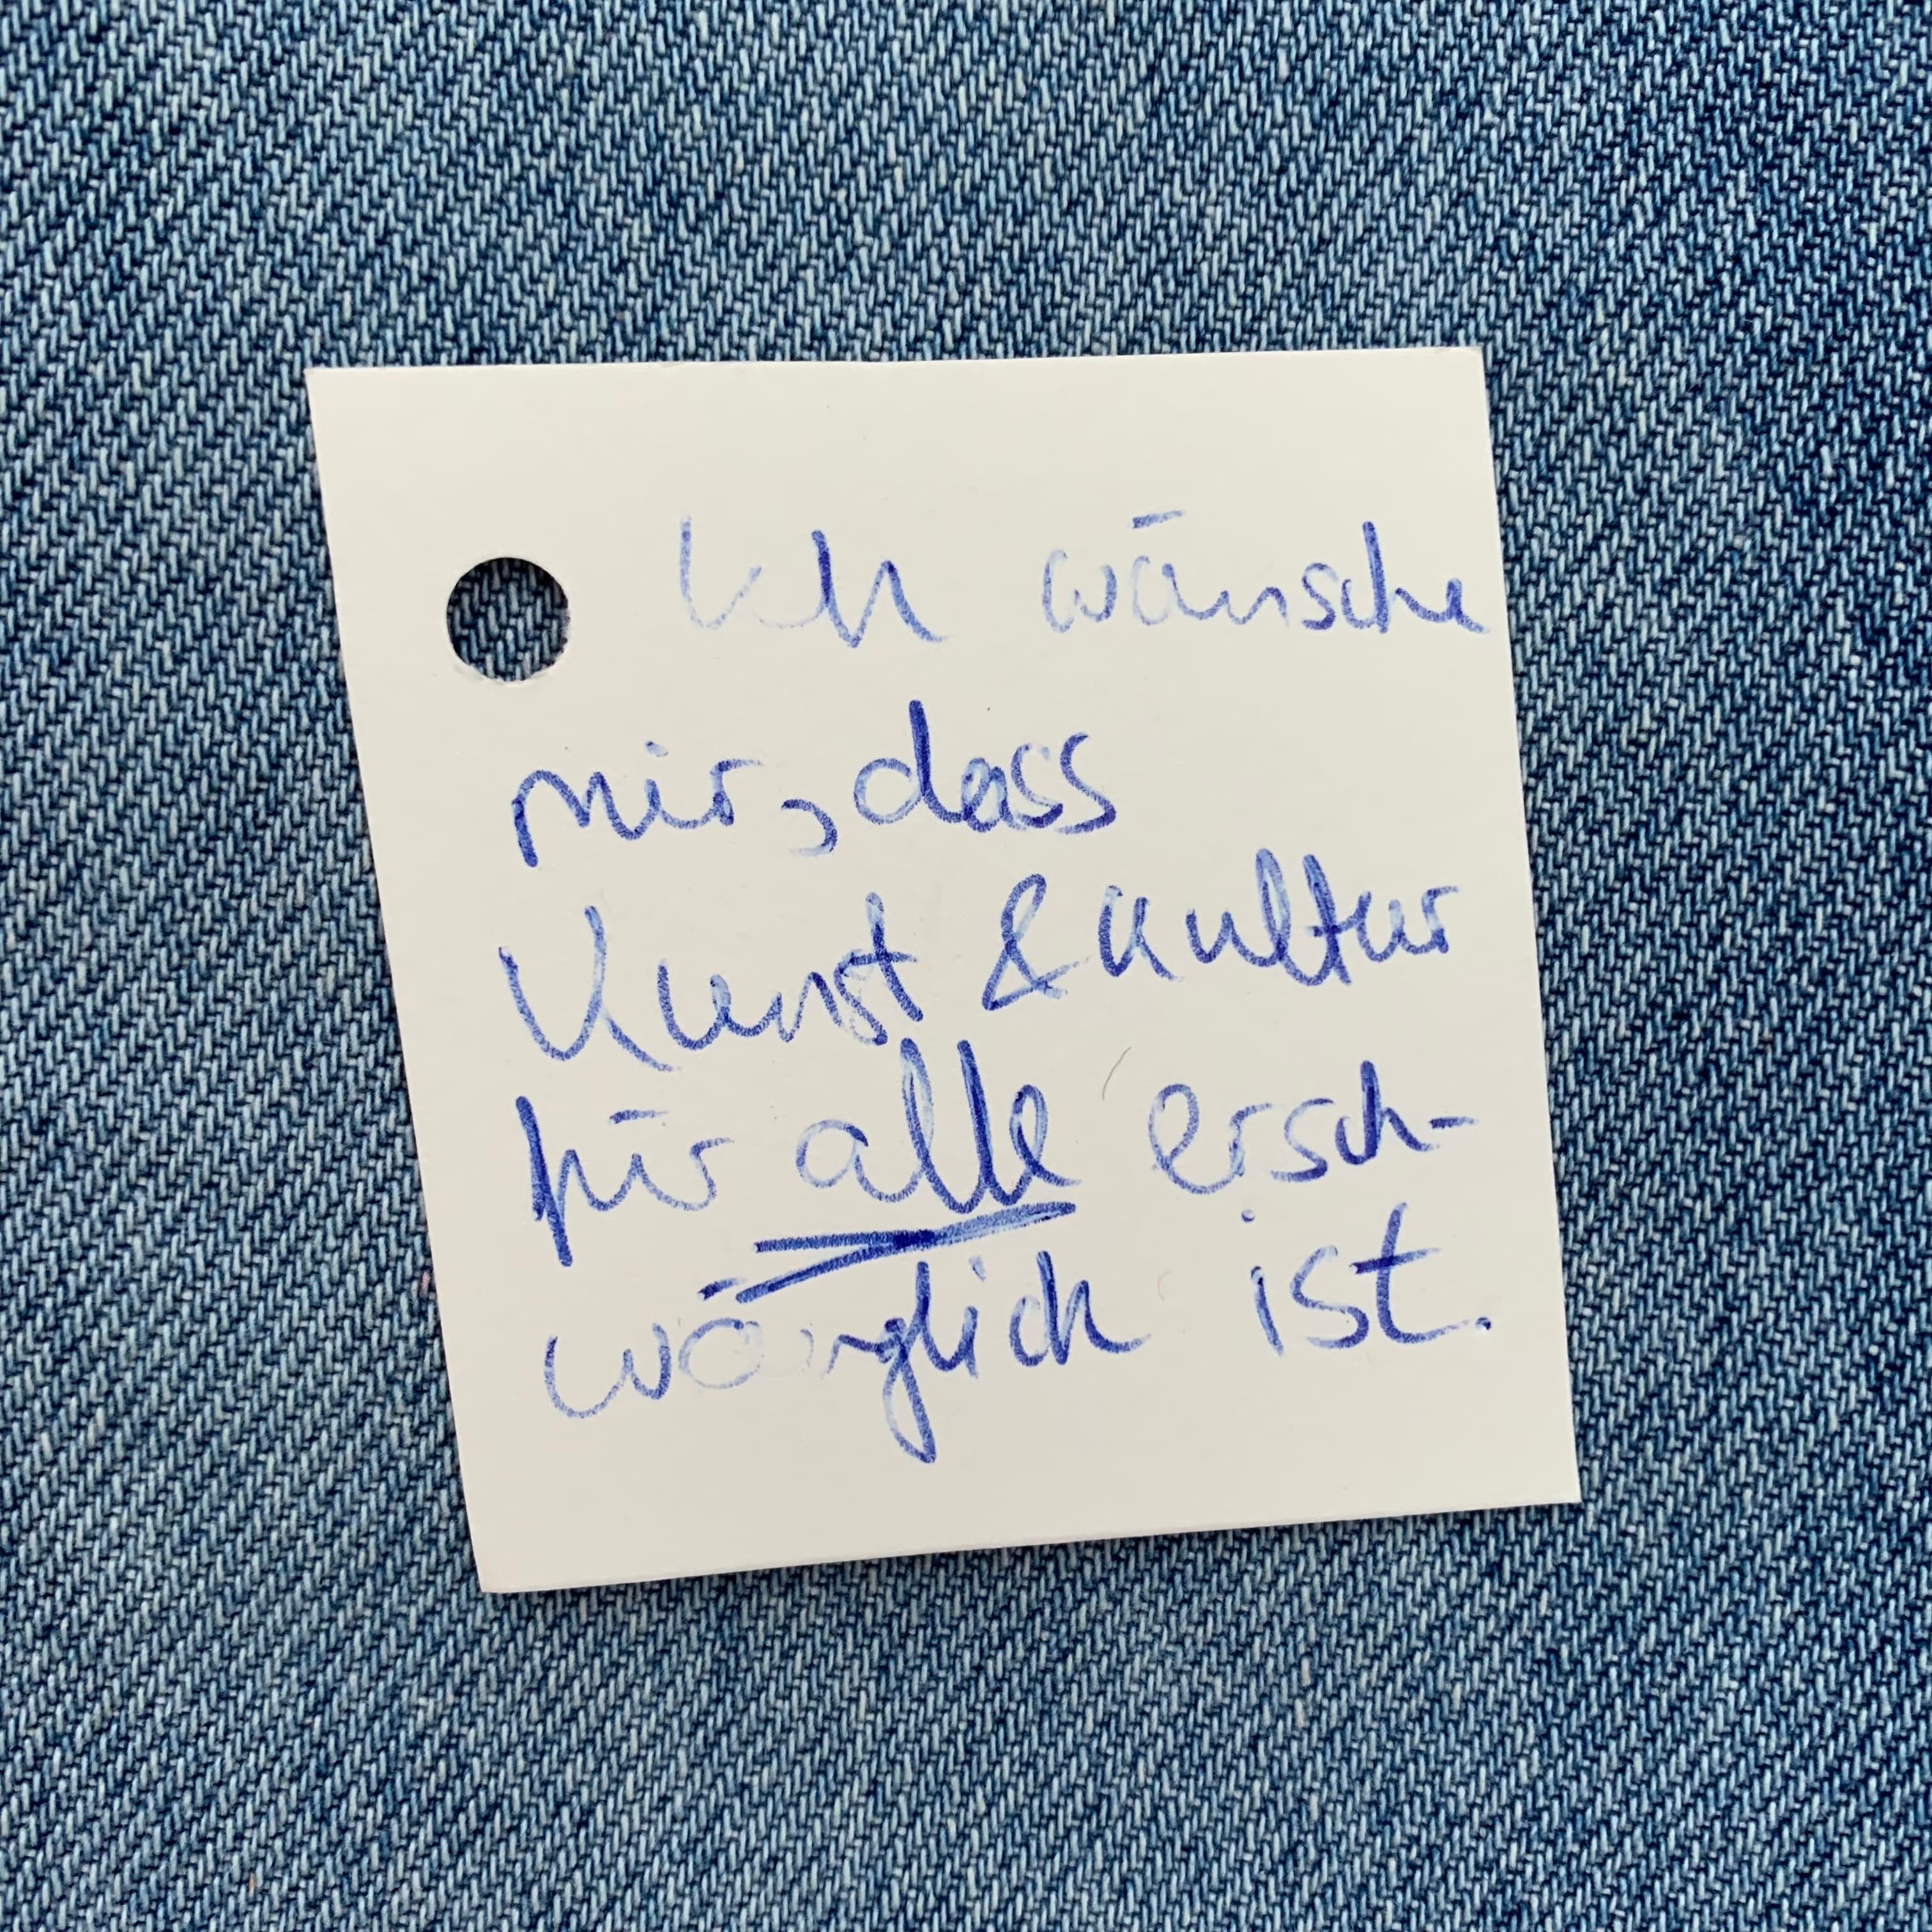 Ich wünsche
mir, dass
Kunst & Kultur
für alle ersch-
wönglich ist.